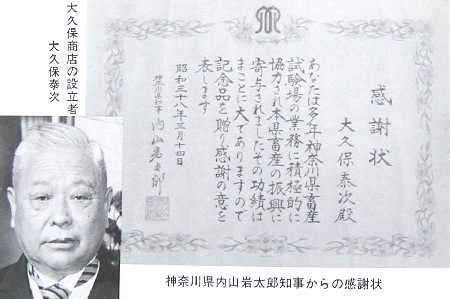 大久保商店の設立者
大久保泰次
感謝状
大久保泰次殿
あなたは多年神奈川県畜産
試験場の業務に積極的に
協力され本県畜産の振興に
寄与されましたその功績は
まことに大でありますので
記念品を贈り感謝の意を
表します
昭和三十八年三月十四日
神奈川県知事 内山岩太郎
神奈川県内山岩太郎知事からの感謝状